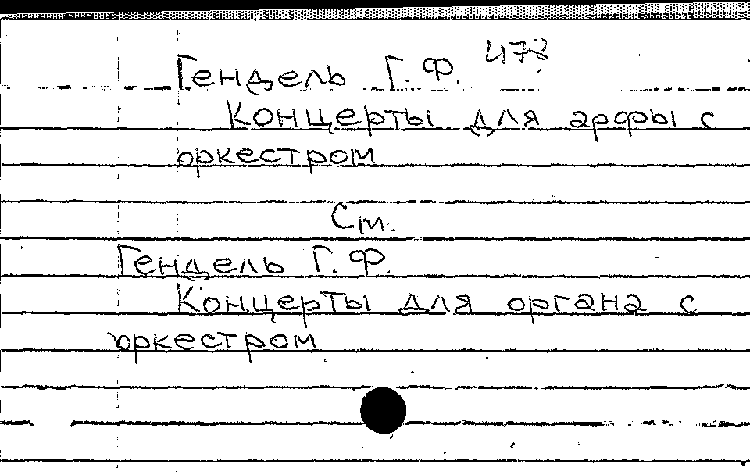 Гендель Г. Ф. 478
Концерты для арфы с
оркестром
См.
Гендель Г. Ф.
Концерты для органа с
оркестром